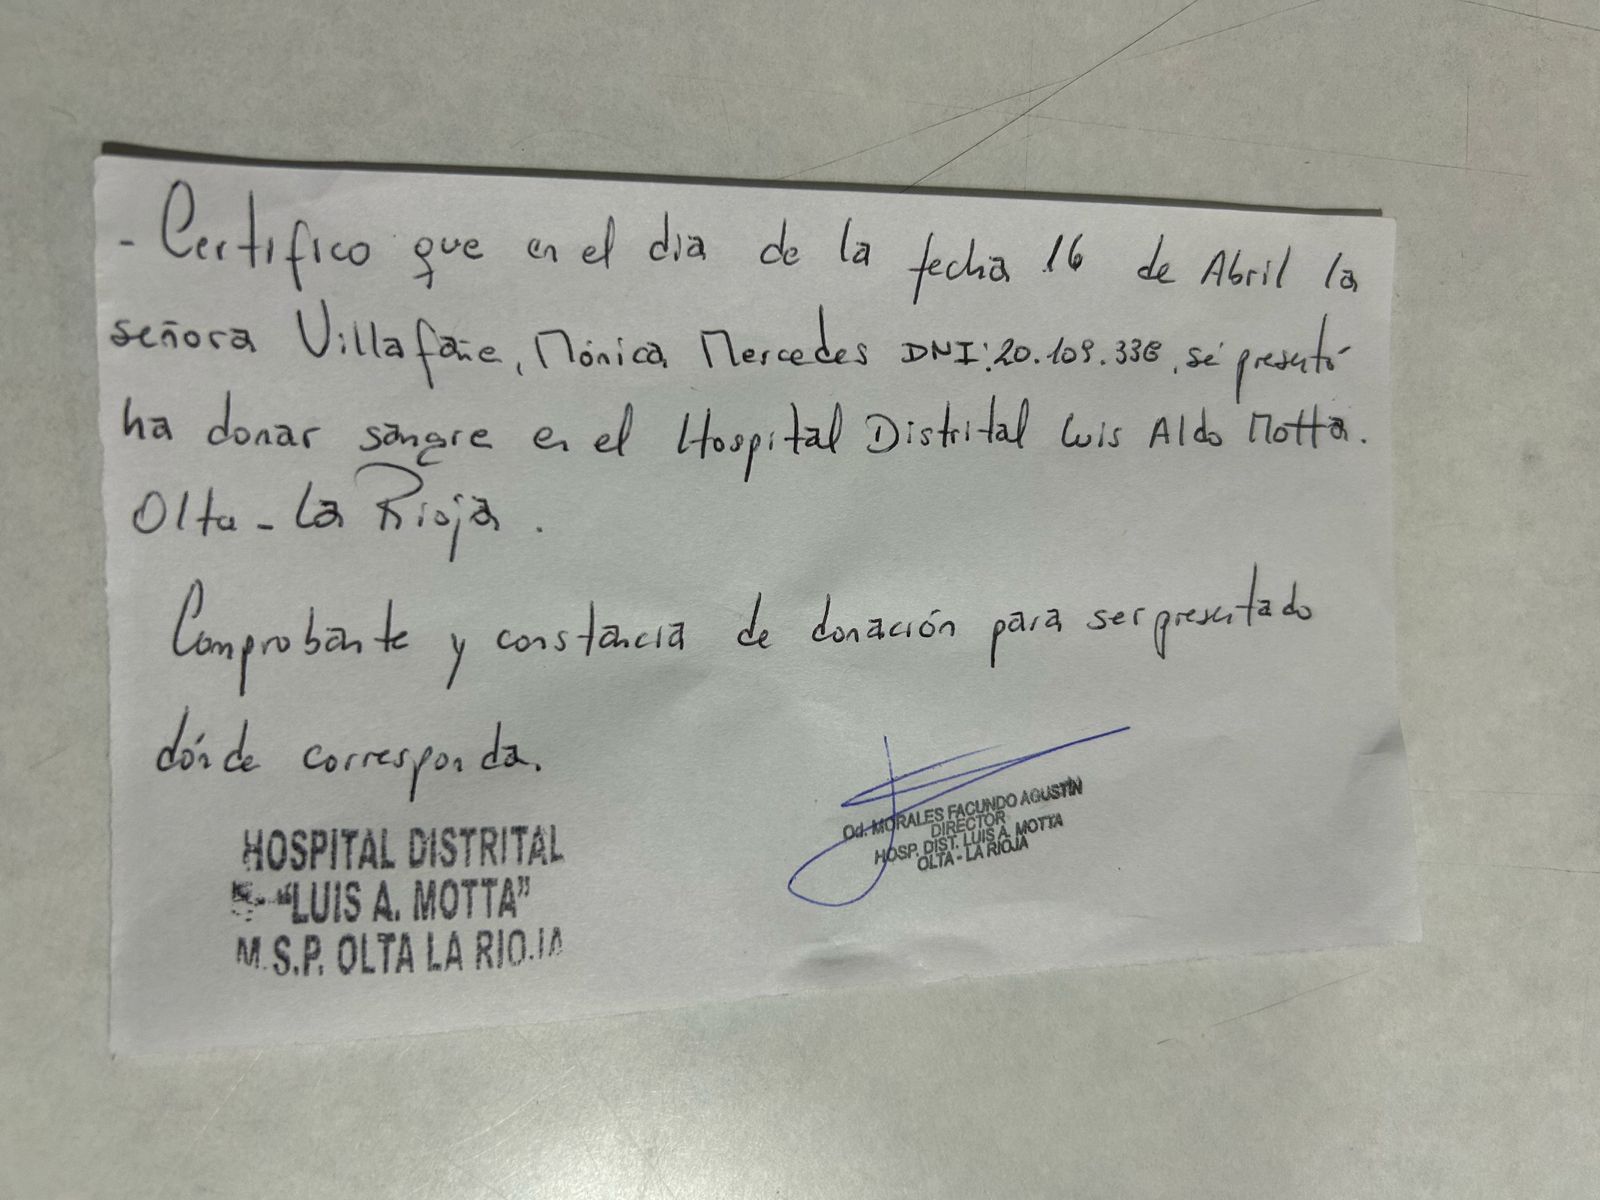 - Certifico que en el dia de la fecha 16 de Abril la
señora Villafañe, Mónica Mercedes DNI: 20.109.336, sé presentó
ha donar sangre en el Hospital Distrital Luis Aldo Motta.
Olta - La Rioja.
Comprobante y constancia de donación para ser presentado
dónde corresponda.
HOSPITAL DISTRITAL
"LUIS A. MOTTA"
M.S.P. OLTA LA RIOJA
Od. MORALES FACUNDO AGUSTÍN
DIRECTOR
HOSP. DIST. LUIS A. MOTTA
OLTA - LA RIOJA